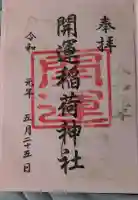 奉拝
開運稲荷神社
開運
令和元年五月二十五日